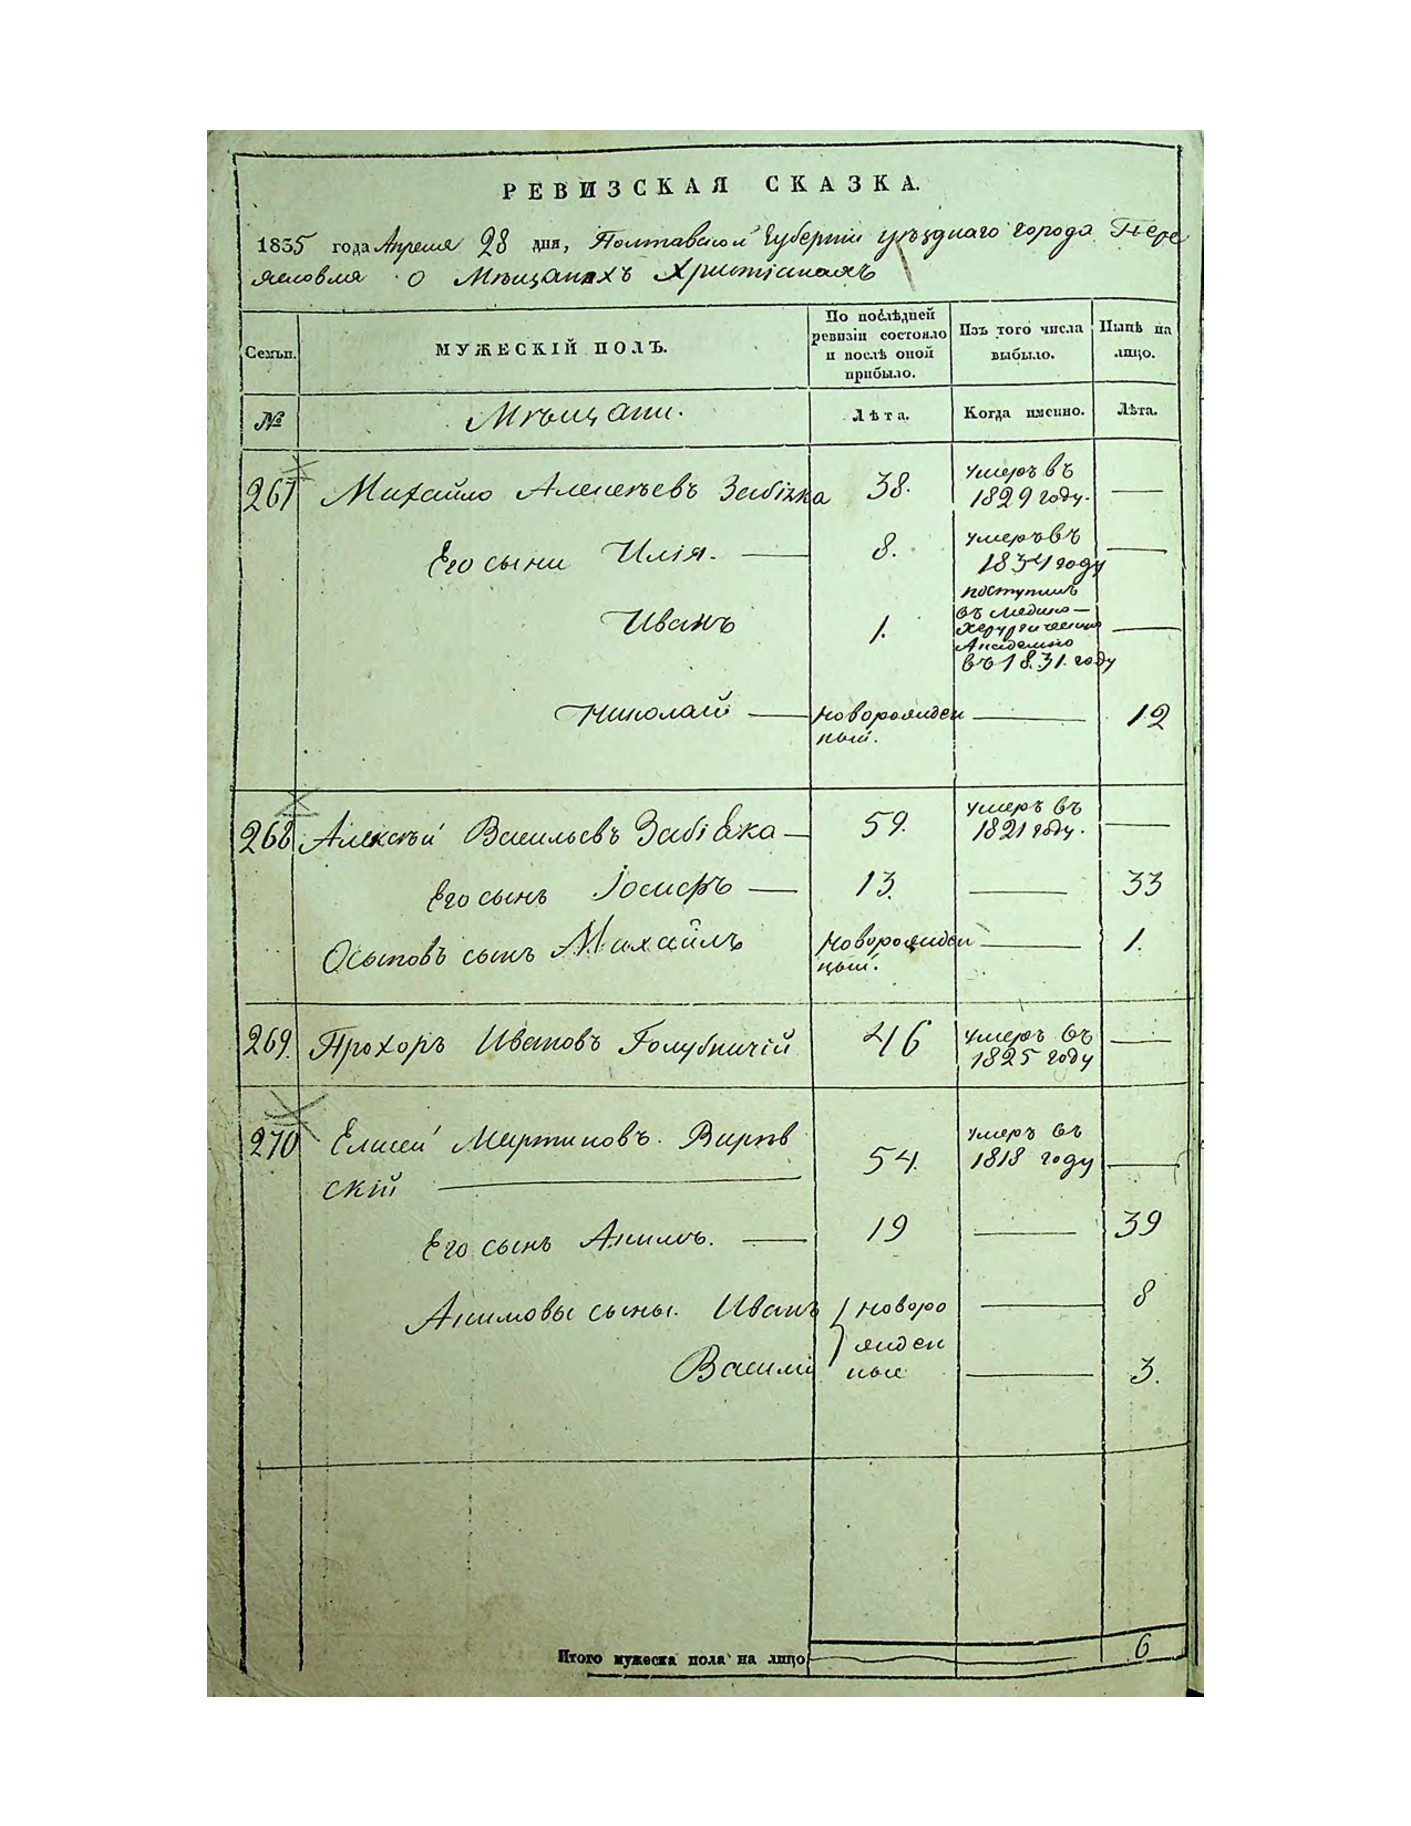 РЕВИЗСКАЯ СКАЗКА.
1835 года Апреля 28 дня, Полтавской Губернии уѣзднаго города Пере
яславля О Мѣщанахъ Христіанахъ
Семьи. МУЖЕСКІЙ ПОЛЪ. По послѣдней ревизіи состояло и послѣ оной прибыло. Изъ того числа выбыло. Нынѣ на лицо.
№ Мѣщани. Лѣта. Когда именно. Лѣта.
267 Михайло Алексѣевъ Забіяка 38. умеръ въ 1829 году. —
Его сыни Илія. — 8. умеръ въ 1834 году —
Иванъ 1. поступилъ въ Медико-Херургическую Академію въ 1831. году —
Николай — новорожден ный. — 12
268 Алексѣй Васильевъ Забіяка — 59. умеръ въ 1821 году. —
Его сынъ Іосифъ — 13. — 33
Осыповъ сынъ Михайлъ новорожден ный. — 1.
269. Прохоръ Ивановъ Голубничій 46 умеръ въ 1825 году —
270 Елисей Мартиновъ. Вирѣв
скій — 54. умеръ въ 1818 году —
Его сынъ Акимъ. — 19 — 39
Акимовы сыны. Иванъ новоро — 8
жден
Василій ные — 3.
Итого мужеска пола на лицо 6